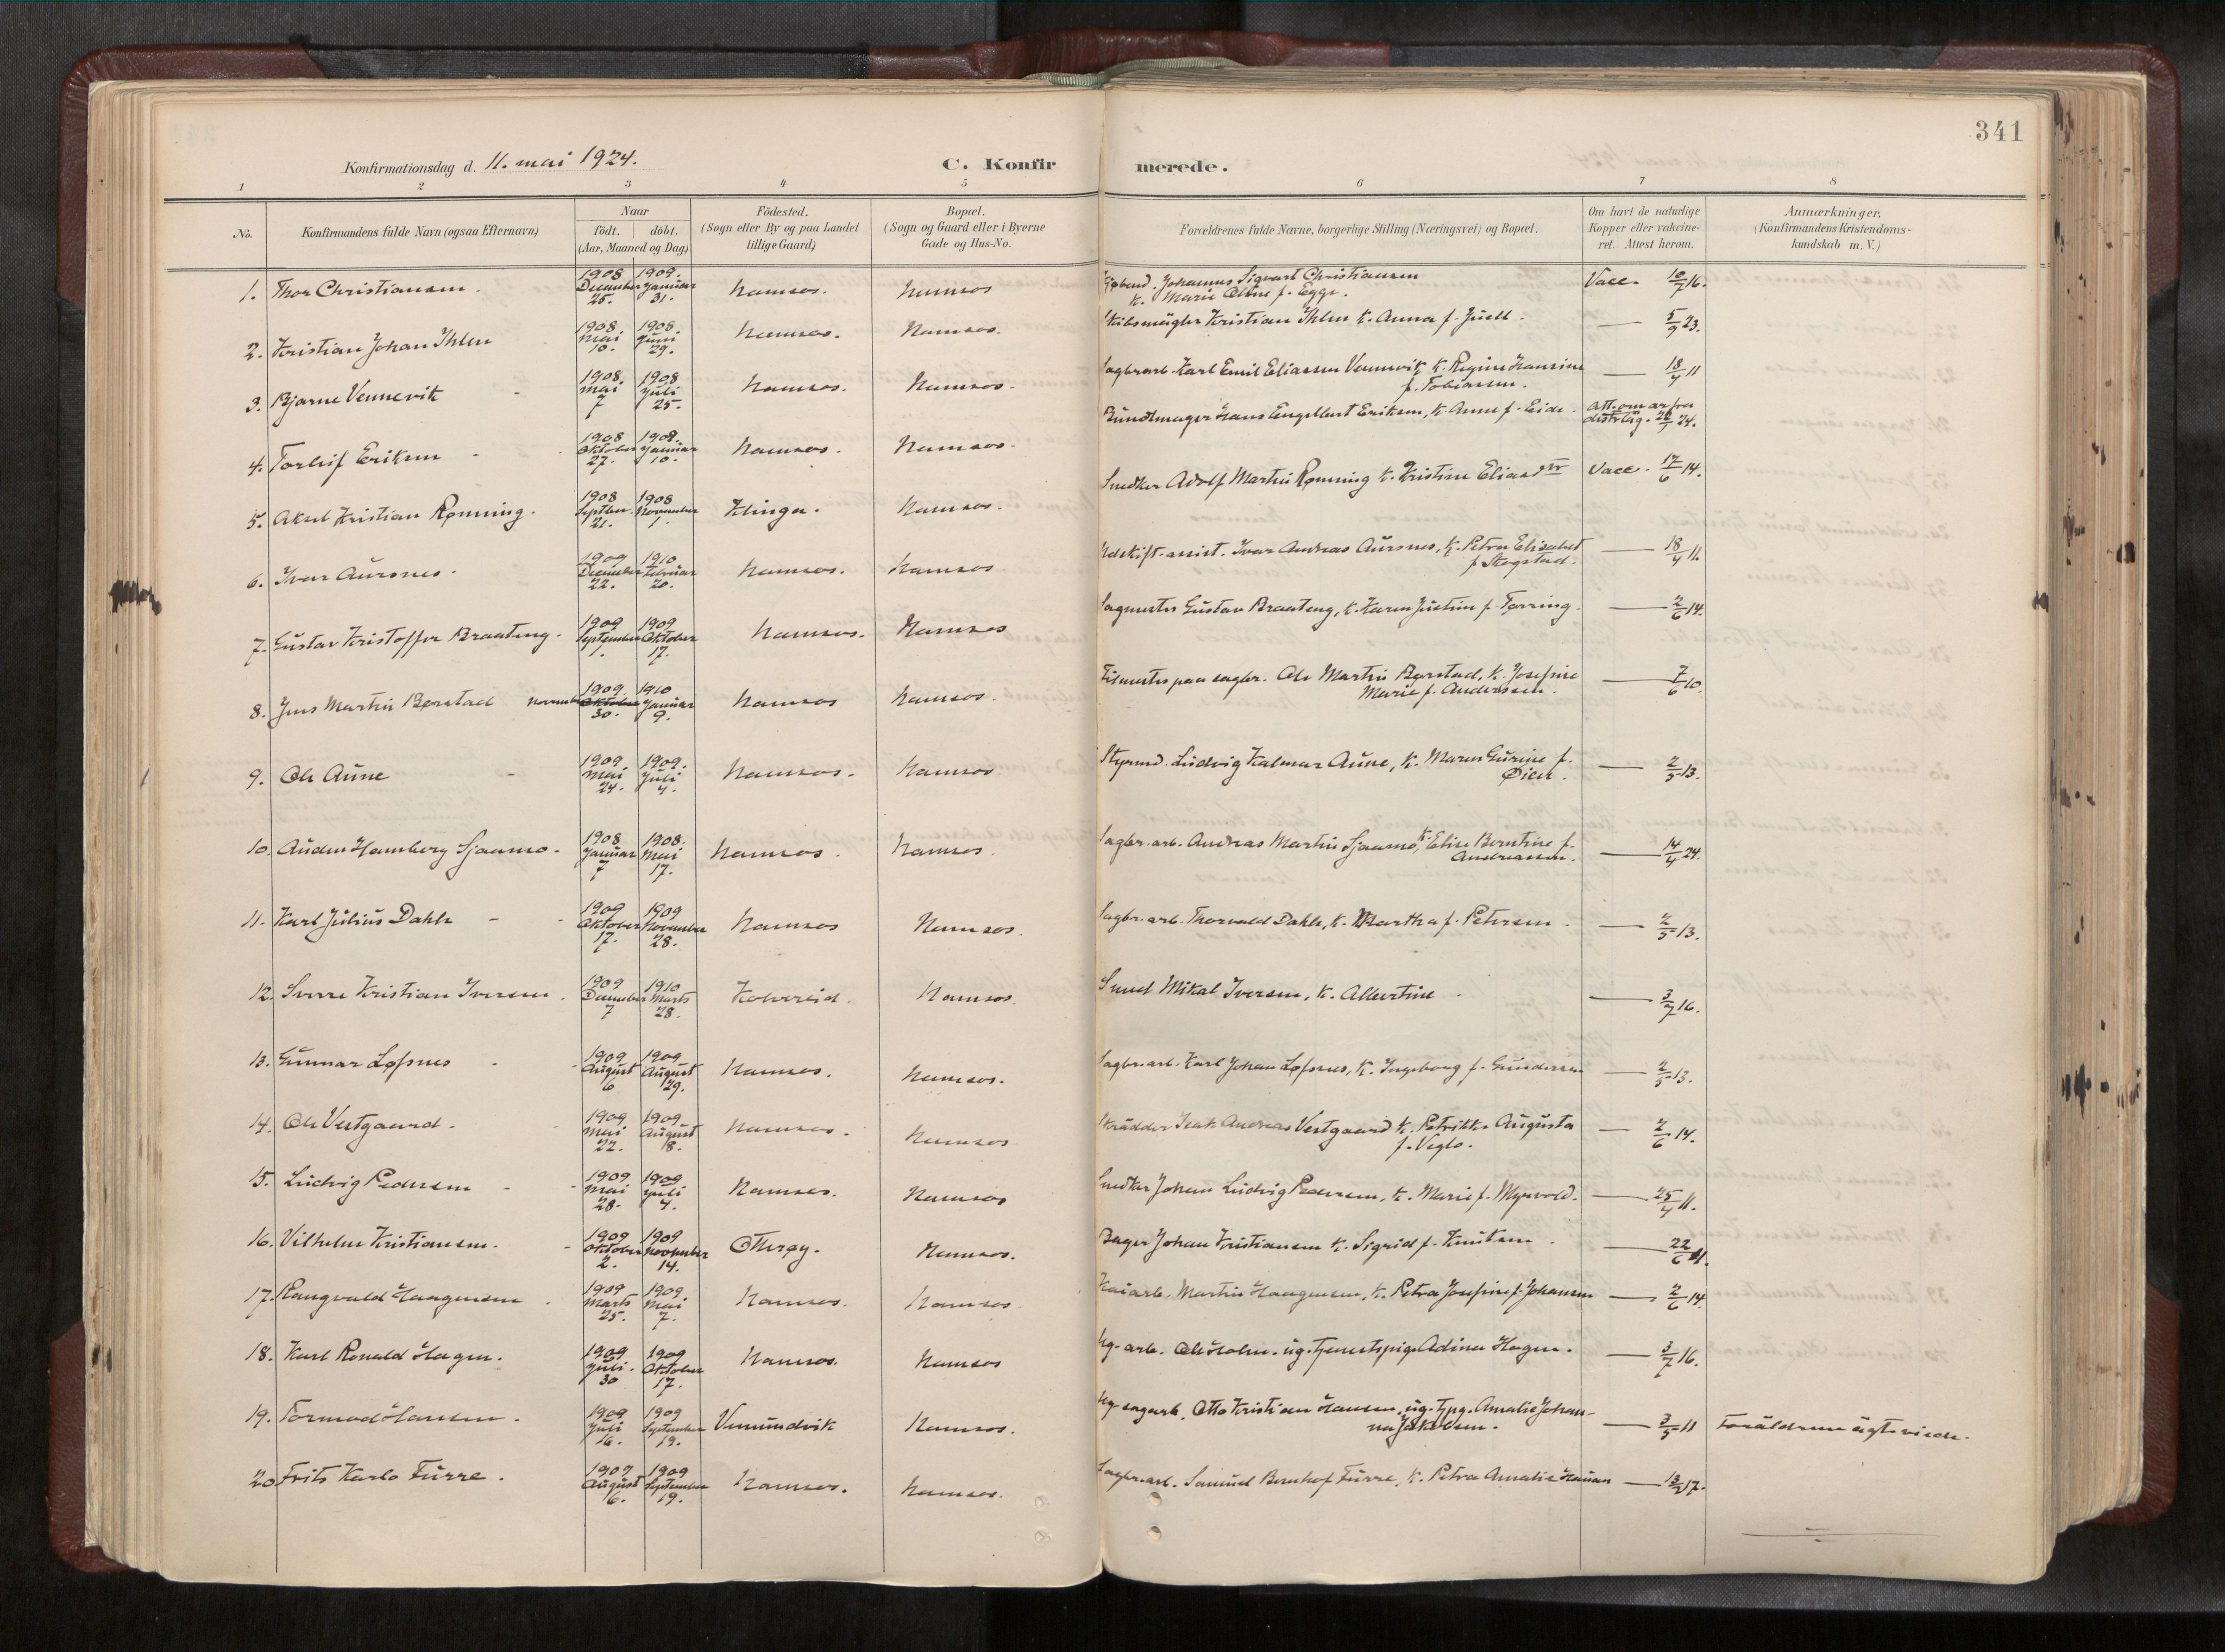 341
Konfirmationsdag d. 11. mai 1924.
C. Konfirmerede.
1 2 3 4 5 6 7 8
No.
Konfirmandens fulde Navn (ogsaa Efternavn)
Naar
födt. döbt.
(Aar, Maaned og Dag)
Födested.
(Sogn eller By og paa Landet
tillige Gaard)
Bopæl.
(Sogn og Gaard eller i Byerne
Gade og Hus-No.
Forældrenes fulde Navne, borgerlige Stilling (Næringsvei) og Bopæl.
Om havt de naturlige
Kopper eller vakcine-
ret. Attest herom.
Anmærkninger.
(Konfirmandens Kristendoms-
kundskab m. V.)
1. Thor Christiansen. 1908 December 25. 1909. Januar 31. Namsos. Namsos Johannes Sigvart Christiansen
K. Marie Oline f. Egge. Vacc. 10/7 16.
2. Kristian Johan Ihlen 1908. Mai 10. 1908. Juni 29. Namsos. Namsos. Skibsmægler Kristian Ihlen K. Anna f. Juell. — 5/9 23.
3. Bjarne Vennevik 1908. Mai 7 1908 Juli 25. Namsos. Namsos. Sagbr.arb. Karl Emil Eliassen Vennevik K. Regine Hansine
f. Tobiassen. — 18/4 11
4. Torleif Eriksen 1908 Oktober 27. 1908. Januar 10. Namsos. Namsos. Bundtmager Hans Engelbert Eriksen, K. Anne f. Eide. Att. om ar fra
distr.læg. 24.
5. Aksel Kristian Rønning. 1908 Septbr. 21. 1908 November 1. Klinga. Namsos. Snedker Adolf Martin Rønning K. Kristine Eliasdtr Vacc. 17/6 14.
6. Ivar Aursnes. 1909 December 22. 1910 Februar 20. Namsos. Namsos Udskift.assist. Ivar Andreas Aursnes, K. Petra Elisabet
f. Skogstad. — 18/4 11.
7. Gustav Kristoffer Braateng. 1909 September 1. 1909 Oktober 17. Namsos. Namsos Sagmester Gustav Braateng, K. Karen Justine f. Tørring. — 2/6 14.
8. Jens Martin Børstad November 1909. Oktober 30. 1910 Januar 9. Namsos Namsos. Filmester paa sagbr. Ole Martin Børstad, K. Josefine
Marie f. Anderssen. — 7/6 10.
9. Ole Aune 1909. Mai 24. 1909. Juli 4. Namsos. Namsos. Styrmd. Ludvig Kalmar Aune, K. Maren Gurine f.
Øien. — 2/5 13.
10. Auden Hamberg Sjaamo. 1908 Januar 7 1908. Mai 17. Namsos. Namsos. Sagbr.arb. Andreas Martin Sjaamo, K. Elise Berntine f.
Andreassen. — 14/4 24.
11. Karl Julius Dahle 1909 Oktober 17. 1909 November 28. Namsos Namsos. Sagbr.arb. Thorvald Dahle, K. Martha f. Petersen. — 2/5 13.
12. Sverre Kristian Iversen. 1909 December 7 1910 Marts 28. Kolvereid. Namsos. Smed Mikal Iversen, K. Albertine. — 3/7 16.
13. Gunnar Løfsnes 1909 August 6 1909 August 29. Namsos. Namsos. Sagbr.arb. Karl Johan Løfsnes, K. Ingeborg f. Gundersen — 2/5 13.
14. Ole Vestgaard. 1909. Mai 22. 1909. August 8. Namsos. Namsos Skrædder Isak Andreas Vestgaard K. Petrikke Augusta
f. Veglo. — 2/6 14.
15. Ludvig Pedersen 1909. Mai 28. 1909 Juli 4. Namsos. Namsos Snedker Johan Ludvig Pedersen, K. Marie f. Myrvold. — 25/4 11.
16. Vilhelm Kristiansen. 1909 Oktober 2. 1909 November 14. Otterøy. Namsos. Bager Johan Kristiansen K. Sigrid f. Knutsen. — 22/6 11.
17. Rangvald Haagensen. 1909 Marts 25. 1909. Mai 7. Namsos. Namsos Kaiarb. Martin Haagensen, K. Petra Josefine f. Johansen — 2/6 14.
18. Karl Ronald Hagen. 1909 Juli. 30 1909 Oktober 17. Namsos. Namsos Ug. arb. Ole Holm. ug. tjenestpige Adina Hagen. — 3/7 16.
19. Tormod Hansen. 1909 Juli 16. 1909 September 19. Vemundvik Namsos. Ug. sagarb. Otto Kristian Hansen, ug. tjpg. Amalie Johan-
na Jakobsen. — 3/5 11 Forældrene ægteviede.
20 Frits Karlo Furre. 1909 August 6. 1909 September 19. Namsos. Namsos. Sagbr.arb. Samuel Bernhof Furre, K. Petra Amalie Hauan — 13/2 17.